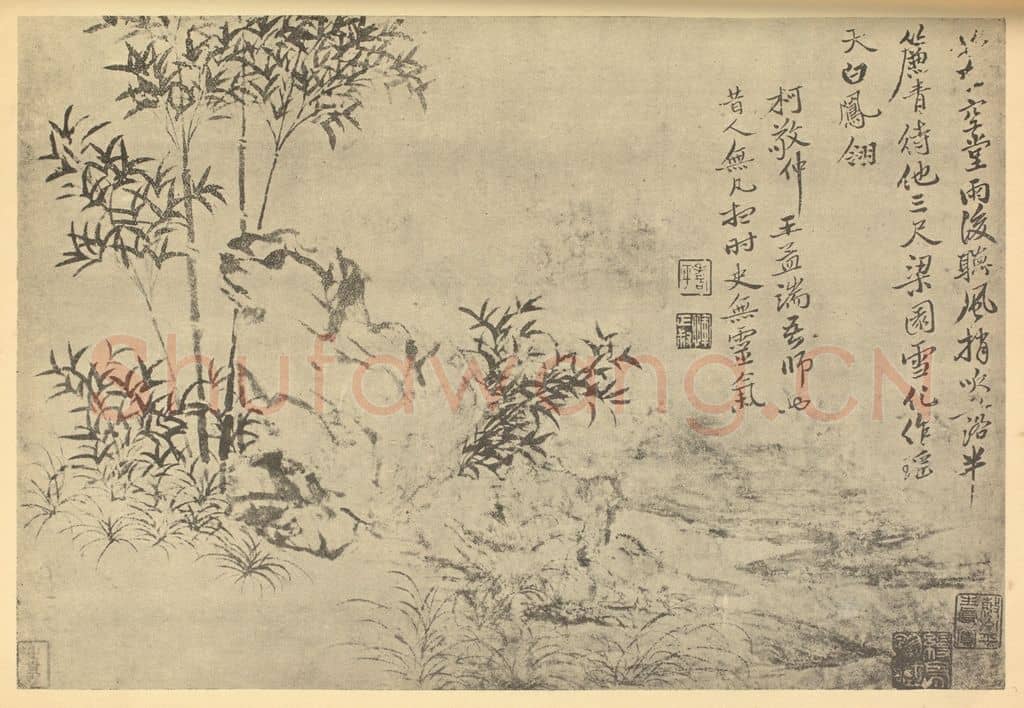 空堂雨後聽風梢吹落半
簾青待他三尺梁園雪化作瑶
天白鳳翎
柯敬仲王孟端吾師也
昔人無凡时史無靈氣
Shufawang.CN